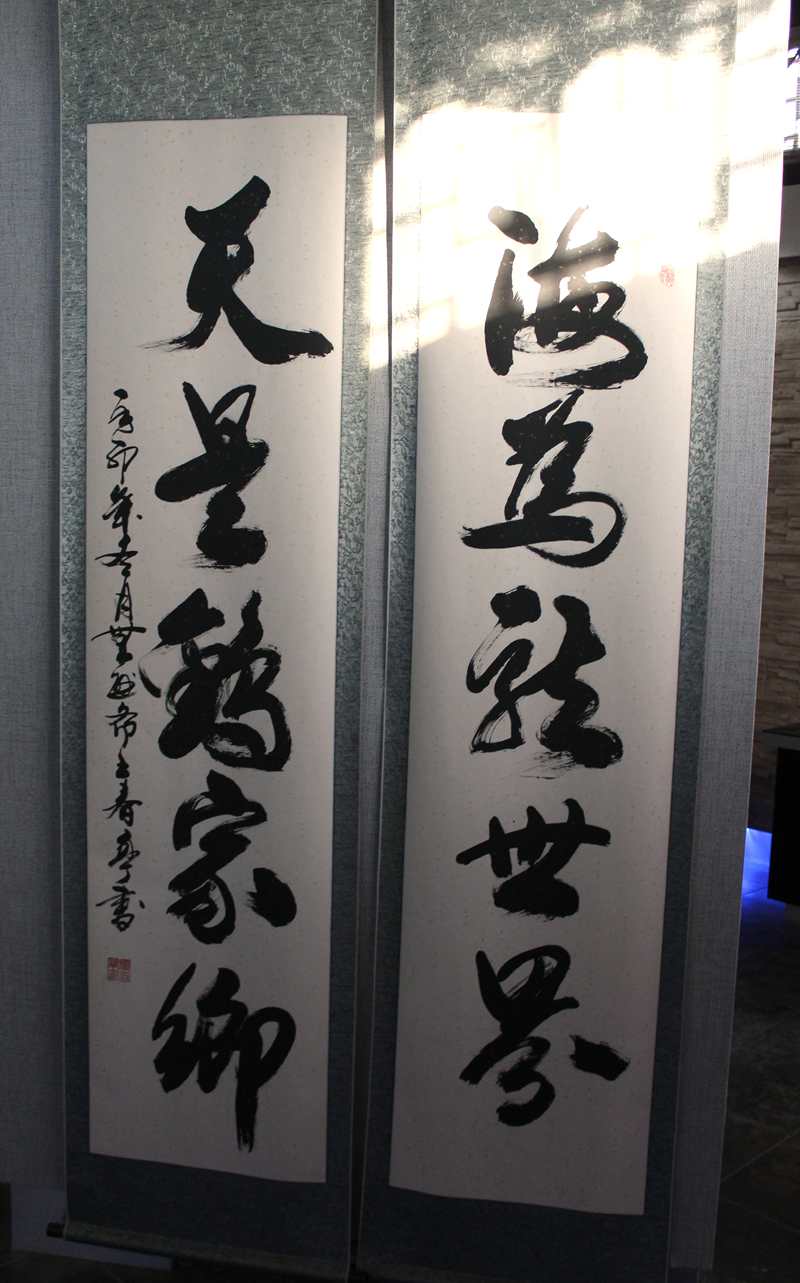 海為龍世界
天是鶴家鄉
辛卯年冬月無為布王春亭書